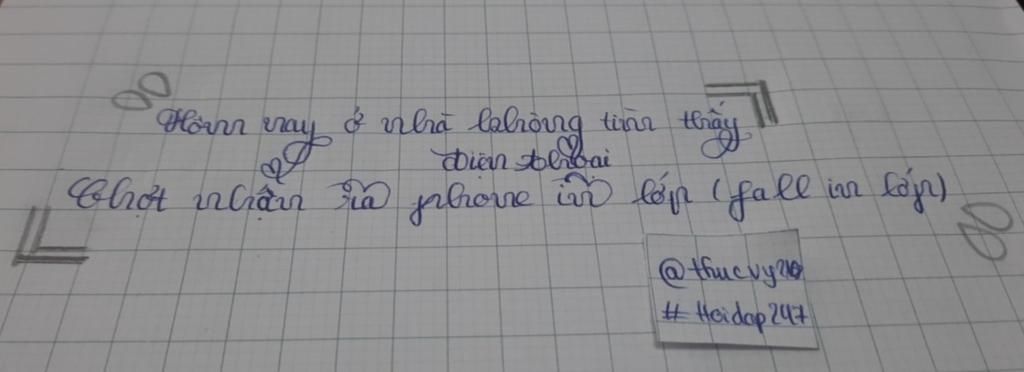 Hôm nay ở nhà không tìm thấy
điện thoại
Chợt nhận ra phone in lớp (fall in lớp)
@thucvy210
#Hoidap247